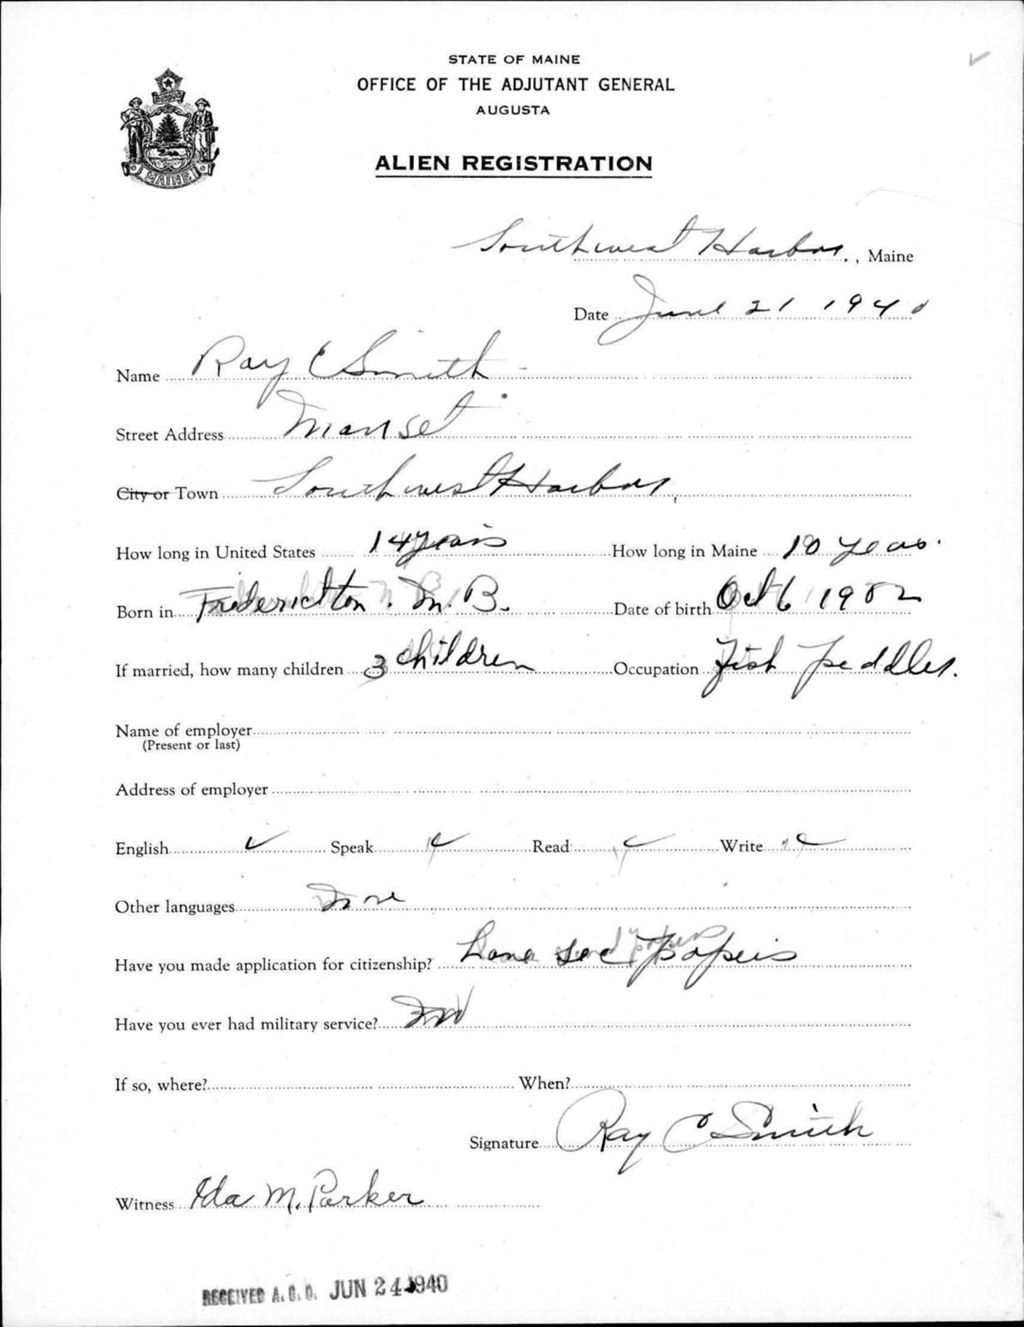 STATE OF MAINE
OFFICE OF THE ADJUTANT GENERAL
AUGUSTA
MAINE
ALIEN REGISTRATION
Southwest Harbor, Maine
Date June 21 1940
Name Ray C Smith
Street Address Manset
City or Town Southwest Harbor,
How long in United States 14 years How long in Maine 10 years.
Born in Frederickton. N. B. Date of birth Oct 6 1902
If married, how many children 3 children Occupation Fish peddler.
Name of employer
(Present or last)
Address of employer
English ✓ Speak ✓ Read ✓ Write ✓
Other languages None
Have you made application for citizenship? Have papers
Have you ever had military service? No
If so, where? When?
Signature Ray C Smith
Witness Ida M. Parker
RECEIVED A.G.O. JUN 24 1940